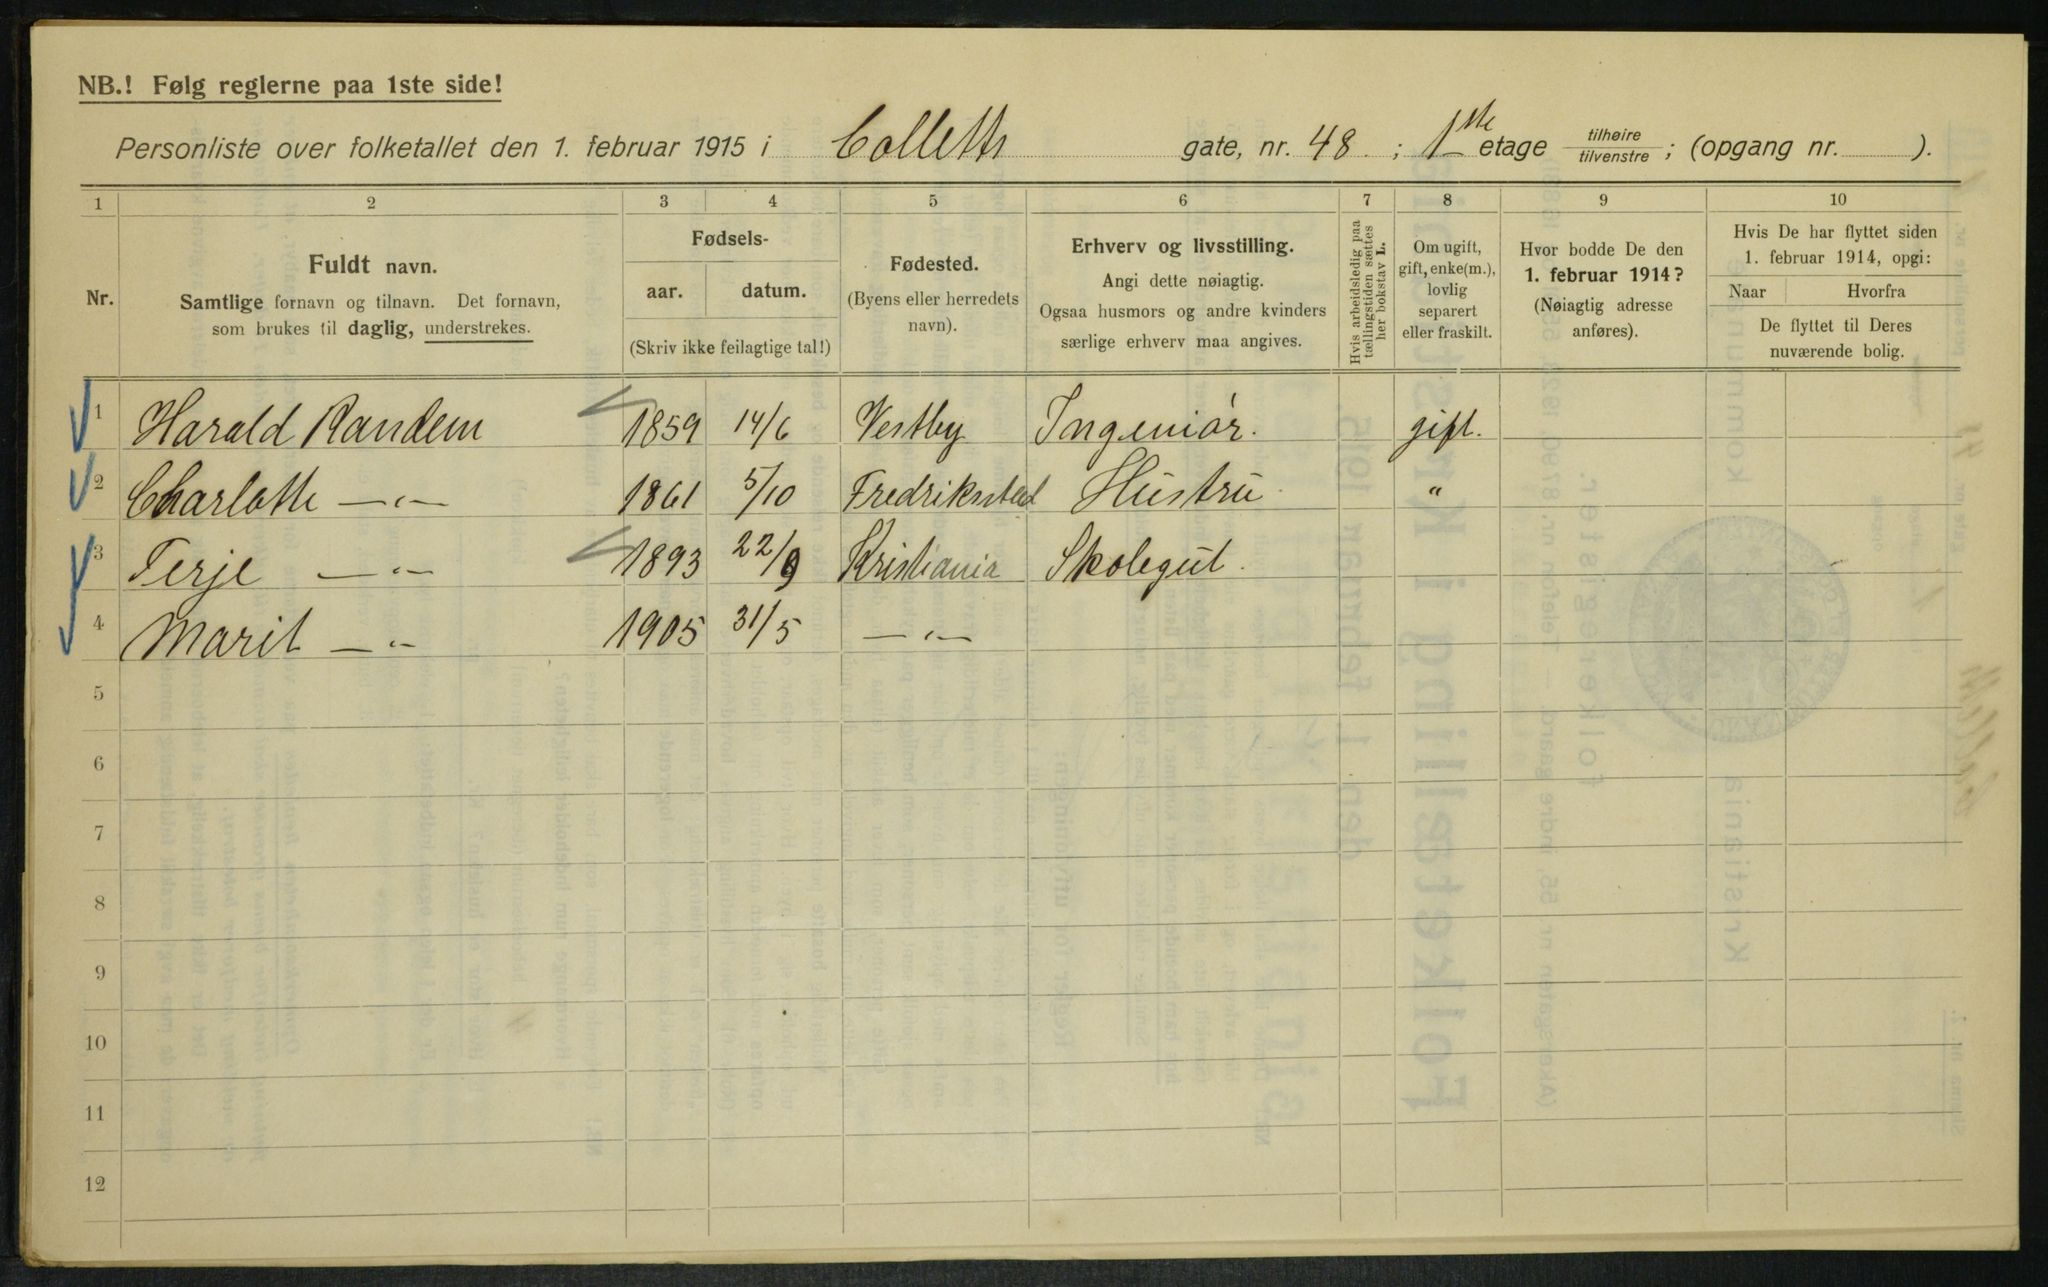 NB.! Følg reglerne paa 1ste side!
Personliste over folketallet den 1. februar 1915 i Colletts gate, nr. 48 ; 1ste etage tilhøire tilvenstre ; (opgang nr. ).
1 2 3 4 5 6 7 8 9 10
Nr.
Fuldt navn.
Samtlige fornavn og tilnavn. Det fornavn,
som brukes til daglig, understrekes.
Fødsels-
aar. datum.
(Skriv ikke feilagtige tal!)
Fødested.
(Byens eller herredets
navn).
Erhverv og livsstilling.
Angi dette nøiagtig.
Ogsaa husmors og andre kvinders
særlige erhverv maa angives.
Hvis arbeidsledig paa
tællingstiden sættes
her bokstav L.
Om ugift,
gift, enke(m.),
lovlig
separert
eller fraskilt.
Hvor bodde De den
1. februar 1914?
(Nøiagtig adresse
anføres).
Hvis De har flyttet siden
1. februar 1914, opgi:
Naar Hvorfra
De flyttet til Deres
nuværende bolig.
1 Harald Randem 1859 14/6 Vestby Ingeniör. gift.
2 Charlotte —"— 1861 5/10 Fredriksstad Hustru "
3 Terje —"— 1893 22/9 Kristiania Skolegut.
4 Marit —"— 1905 31/5 —"—
5
6
7
8
9
10
11
12